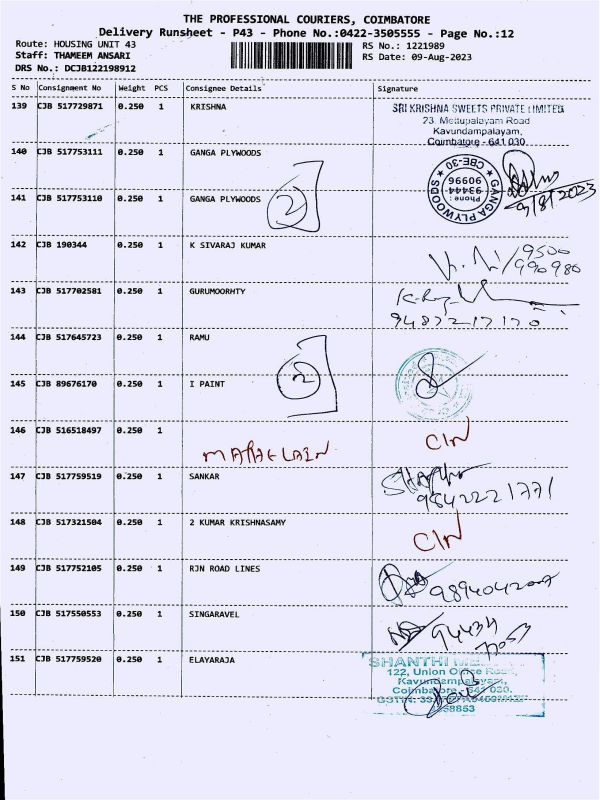 THE PROFESSIONAL COURIERS, COIMBATORE
Delivery Runsheet - P43 - Phone No.:0422-3505555 - Page No.:12
Route: HOUSING UNIT 43
RS No.: 1221989
Staff: THAMEEM ANSARI
RS Date: 09-Aug-2023
DRS No.: DCJB122198912
S No Consignment No Weight PCS Consignee Details Signature
139 CJB 517729871 0.250 1 KRISHNA
SRI KRISHNA SWEETS PRIVATE LIMITED
23, Mettupalayam Road
Kavundampalayam,
Coimbatore - 641 030.
140 CJB 517753111 0.250 1 GANGA PLYWOODS
GANGA PLYWOODS
CBE-30
Phone :
93444
96690
9/8/2023
141 CJB 517753110 0.250 1 GANGA PLYWOODS
2
142 CJB 190344 0.250 1 K SIVARAJ KUMAR
9500
990980
143 CJB 517702581 0.250 1 GURUMOORHTY
9487217170
144 CJB 517645723 0.250 1 RAMU
145 CJB 89676170 0.250 1 I PAINT
2
146 CJB 516518497 0.250 1
CIN
147 CJB 517759519 0.250 1 SANKAR
9842221771
148 CJB 517321504 0.250 1 2 KUMAR KRISHNASAMY
CIN
149 CJB 517752105 0.250 1 RJN ROAD LINES
150 CJB 517550553 0.250 1 SINGARAVEL
94434
77053
151 CJB 517759520 0.250 1 ELAYARAJA
SHANTHI
122, Union Office Road,
Kavundampalayam,
Coimbatore - 641 030.